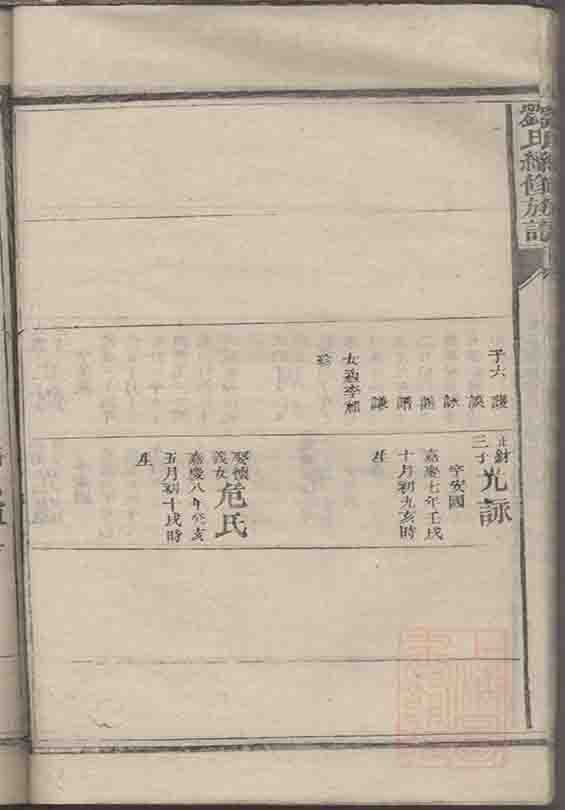 劉氏續修族
子六
談
詠
謙
女適李
珍
正封
三子
光詠
字安國
嘉慶七年壬戌
十月初九亥時
生
娶懷
義女
危氏
嘉慶八年癸亥
五月初十戌時
生